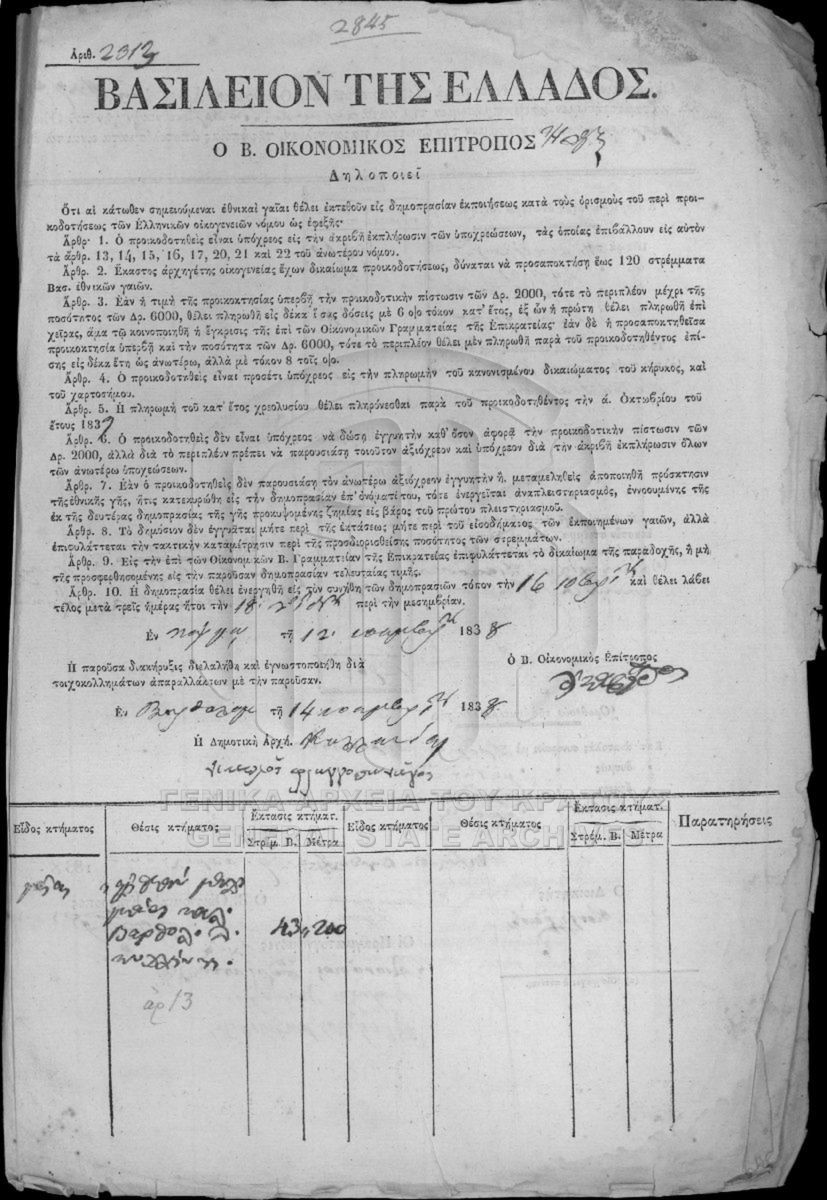 2845
Ἀριθ. 2312
ΒΑΣΙΛΕΙΟΝ ΤΗΣ ΕΛΛΑΔΟΣ.
Ο Β. ΟΙΚΟΝΟΜΙΚΟΣ ΕΠΙΤΡΟΠΟΣ
Δηλοποιεῖ
Ὅτι αἱ κάτωθεν σημειούμεναι ἐθνικαὶ γαῖαι θέλει ἐκτεθοῦν εἰς δημοπρασίαν ἐκποιήσεως κατὰ τοὺς ὁρισμοὺς τοῦ περὶ προι-
κοδοτήσεως τῶν Ἑλληνικῶν οἰκογενειῶν νόμου ὡς ἐφεξῆς·
Ἄρθρ· 1. Ὁ προικοδοτηθεὶς εἶναι ὑπόχρεος εἰς τὴν ἀκριβῆ ἐκπλήρωσιν τῶν ὑποχρεώσεων, τὰς ὁποίας ἐπιβάλλουν εἰς αὐτὸν
τὰ ἄρθρ. 13, 14, 15, 16, 17, 20, 21 καὶ 22 τοῦ ἀνωτέρω νόμου.
Ἄρθρ. 2. Ἕκαστος ἀρχηγέτης οἰκογενείας ἔχων δικαίωμα προικοδοτήσεως, δύναται νὰ προσαποκτήσῃ ἕως 120 στρέμματα
Βασ. ἐθνικῶν γαιῶν.
Ἄρθρ. 3. Ἐὰν ἡ τιμὴ τῆς προικοκτησίας ὑπερβῇ τὴν προικοδοτικὴν πίστωσιν τῶν Δρ. 2000, τότε τὸ περιπλέον μέχρι τῆς
ποσότητος τῶν Δρ. 6000, θέλει πληρωθῆ εἰς δέκα ἴσας δόσεις μὲ 6 ο|ο τόκον κατ' ἔτος, ἐξ ὧν ἡ πρώτη θέλει πληρωθῆ ἐπὶ
χεῖρας, ἅμα τῷ κοινοποιηθῇ ἡ ἔγκρισις τῆς ἐπὶ τῶν Οἰκονομικῶν Γραμματείας τῆς Ἐπικρατείας· ἐὰν δὲ ἡ προσαποκτηθεῖσα
προικοκτησία ὑπερβῇ καὶ τὴν ποσότητα τῶν Δρ. 6000, τότε τὸ περιπλέον θέλει μὲν πληρωθῆ παρὰ τοῦ προικοδοτηθέντος ἐπί-
σης εἰς δέκα ἔτη ὡς ἀνωτέρω, ἀλλὰ μὲ τόκον 8 τοῖς ο|ο.
Ἄρθρ. 4. Ὁ προικοδοτηθεὶς εἶναι προσέτι ὑπόχρεος εἰς τὴν πληρωμὴν τοῦ κανονισμένου δικαιώματος τοῦ κήρυκος, καὶ
τοῦ χαρτοσήμου.
Ἄρθρ. 5. Ἡ πληρωμὴ τοῦ κατ' ἔτος χρεολυσίου θέλει πληρόνεσθαι παρὰ τοῦ προικοδοτηθέντος τὴν ά. Ὀκτωβρίου τοῦ
ἔτους 1839
Ἄρθρ. 6. Ὁ προικοδοτηθεὶς δὲν εἶναι ὑπόχρεος νὰ δώσῃ ἐγγυητὴν καθ' ὅσον ἀφορᾷ τὴν προικοδοτικὴν πίστωσιν τῶν
Δρ. 2000, ἀλλὰ διὰ τὸ περιπλέον πρέπει νὰ παρουσιάσῃ τοιοῦτον ἀξιόχρεον καὶ ὑπόχρεον διὰ τὴν ἀκριβῆ ἐκπλήρωσιν ὅλων
τῶν ἀνωτέρω ὑποχεώσεων.
Ἄρθρ. 7. Ἐὰν ὁ προικοδοτηθεὶς δὲν παρουσιάσῃ τὸν ἀνωτέρω ἀξιόχρεον ἐγγυητὴν ἢ μεταμεληθεὶς ἀποποιηθῇ πρόσκτησιν
τῆς ἐθνικῆς γῆς, ἥτις κατεκυρώθη εἰς τὴν δημοπρασίαν ἐπ' ὀνόματί του, τότε ἐνεργεῖται ἀναπλειστηριασμὸς, ἐννοουμένης τῆς
ἐκ τῆς δευτέρας δημοπρασίας τῆς γῆς προκυψομένης ζημίας εἰς βάρος τοῦ πρώτου πλειστηριασμοῦ.
Ἄρθρ. 8. Τὸ δημόσιον δὲν ἐγγυᾶται μήτε περὶ τῆς ἐκτάσεως μήτε περὶ τοῦ εἰσοδήματος τῶν ἐκποιημένων γαιῶν, ἀλλὰ
ἐπιφυλάττεται τὴν τακτικὴν καταμέτρησιν περὶ τῆς προσδιορισθείσης ποσότητος τῶν στρεμμάτων.
Ἄρθρ. 9. Εἰς τὴν ἐπὶ τῶν Οἰκονομικῶν Β. Γραμματείαν τῆς Ἐπικρατείας ἐπιφυλάττεται τὸ δικαίωμα τῆς παραδοχῆς, ἢ μὴ
τῆς προσφερθησομένης εἰς τὴν παροῦσαν δημοπρασίαν τελευταίας τιμῆς.
Ἄρθρ. 10. Ἡ δημοπρασία θέλει ἐνεργηθῆ εἰς τὸν συνήθη τῶν δημοπρασιῶν τόπον τὴν 16 καὶ θέλει λάβει
τέλος μετὰ τρεῖς ἡμέρας ἤτοι τὴν 18 περὶ τὴν μεσημβρίαν.
Ἐν τῇ 12 1838
Ἡ παροῦσα διακήρυξις διελαλήθη καὶ ἐγνωστοποιήθη διὰ
τοιχοκολλημάτων ἀπαραλλάκτων μὲ τὴν παροῦσαν.
Ὁ Β. Οἰκονομικὸς Ἐπίτροπος
Ἐν τῇ 14 1838
Ἡ Δημοτικὴ Ἀρχὴ.
ΓΕΝΙΚΑ ΑΡΧΕΙΑ ΤΟΥ ΚΡΑΤΟΥΣ
GENERAL STATE ARCHIVES
Εἶδος κτήματος Θέσις κτήματος Ἔκτασις κτήματ. Στρέμ. Β. Μέτρα Εἶδος κτήματος Θέσις κτήματος Ἔκτασις κτήματ. Στρέμ. Β. Μέτρα Παρατηρήσεις
43, 200
ἀρ 13